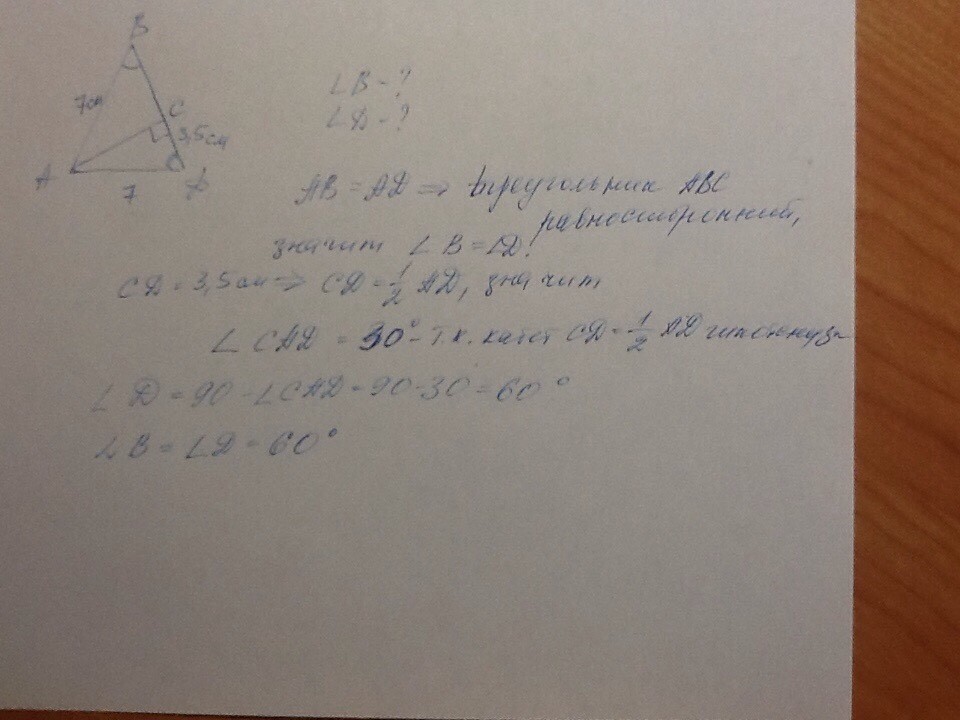 B
7см
C
3,5см
A
7
D
∠B - ?
∠D - ?
AB = AD ⇒ треугольник ABC
равносторонний,
значит ∠B = ∠D.
CD = 3,5 см ⇒ CD = 1/2 AD, значит
∠CAD = 30° - т.к. катет CD = 1/2 AD гипотенузы
∠D = 90 - ∠CAD = 90 - 30 = 60°
∠B = ∠D = 60°